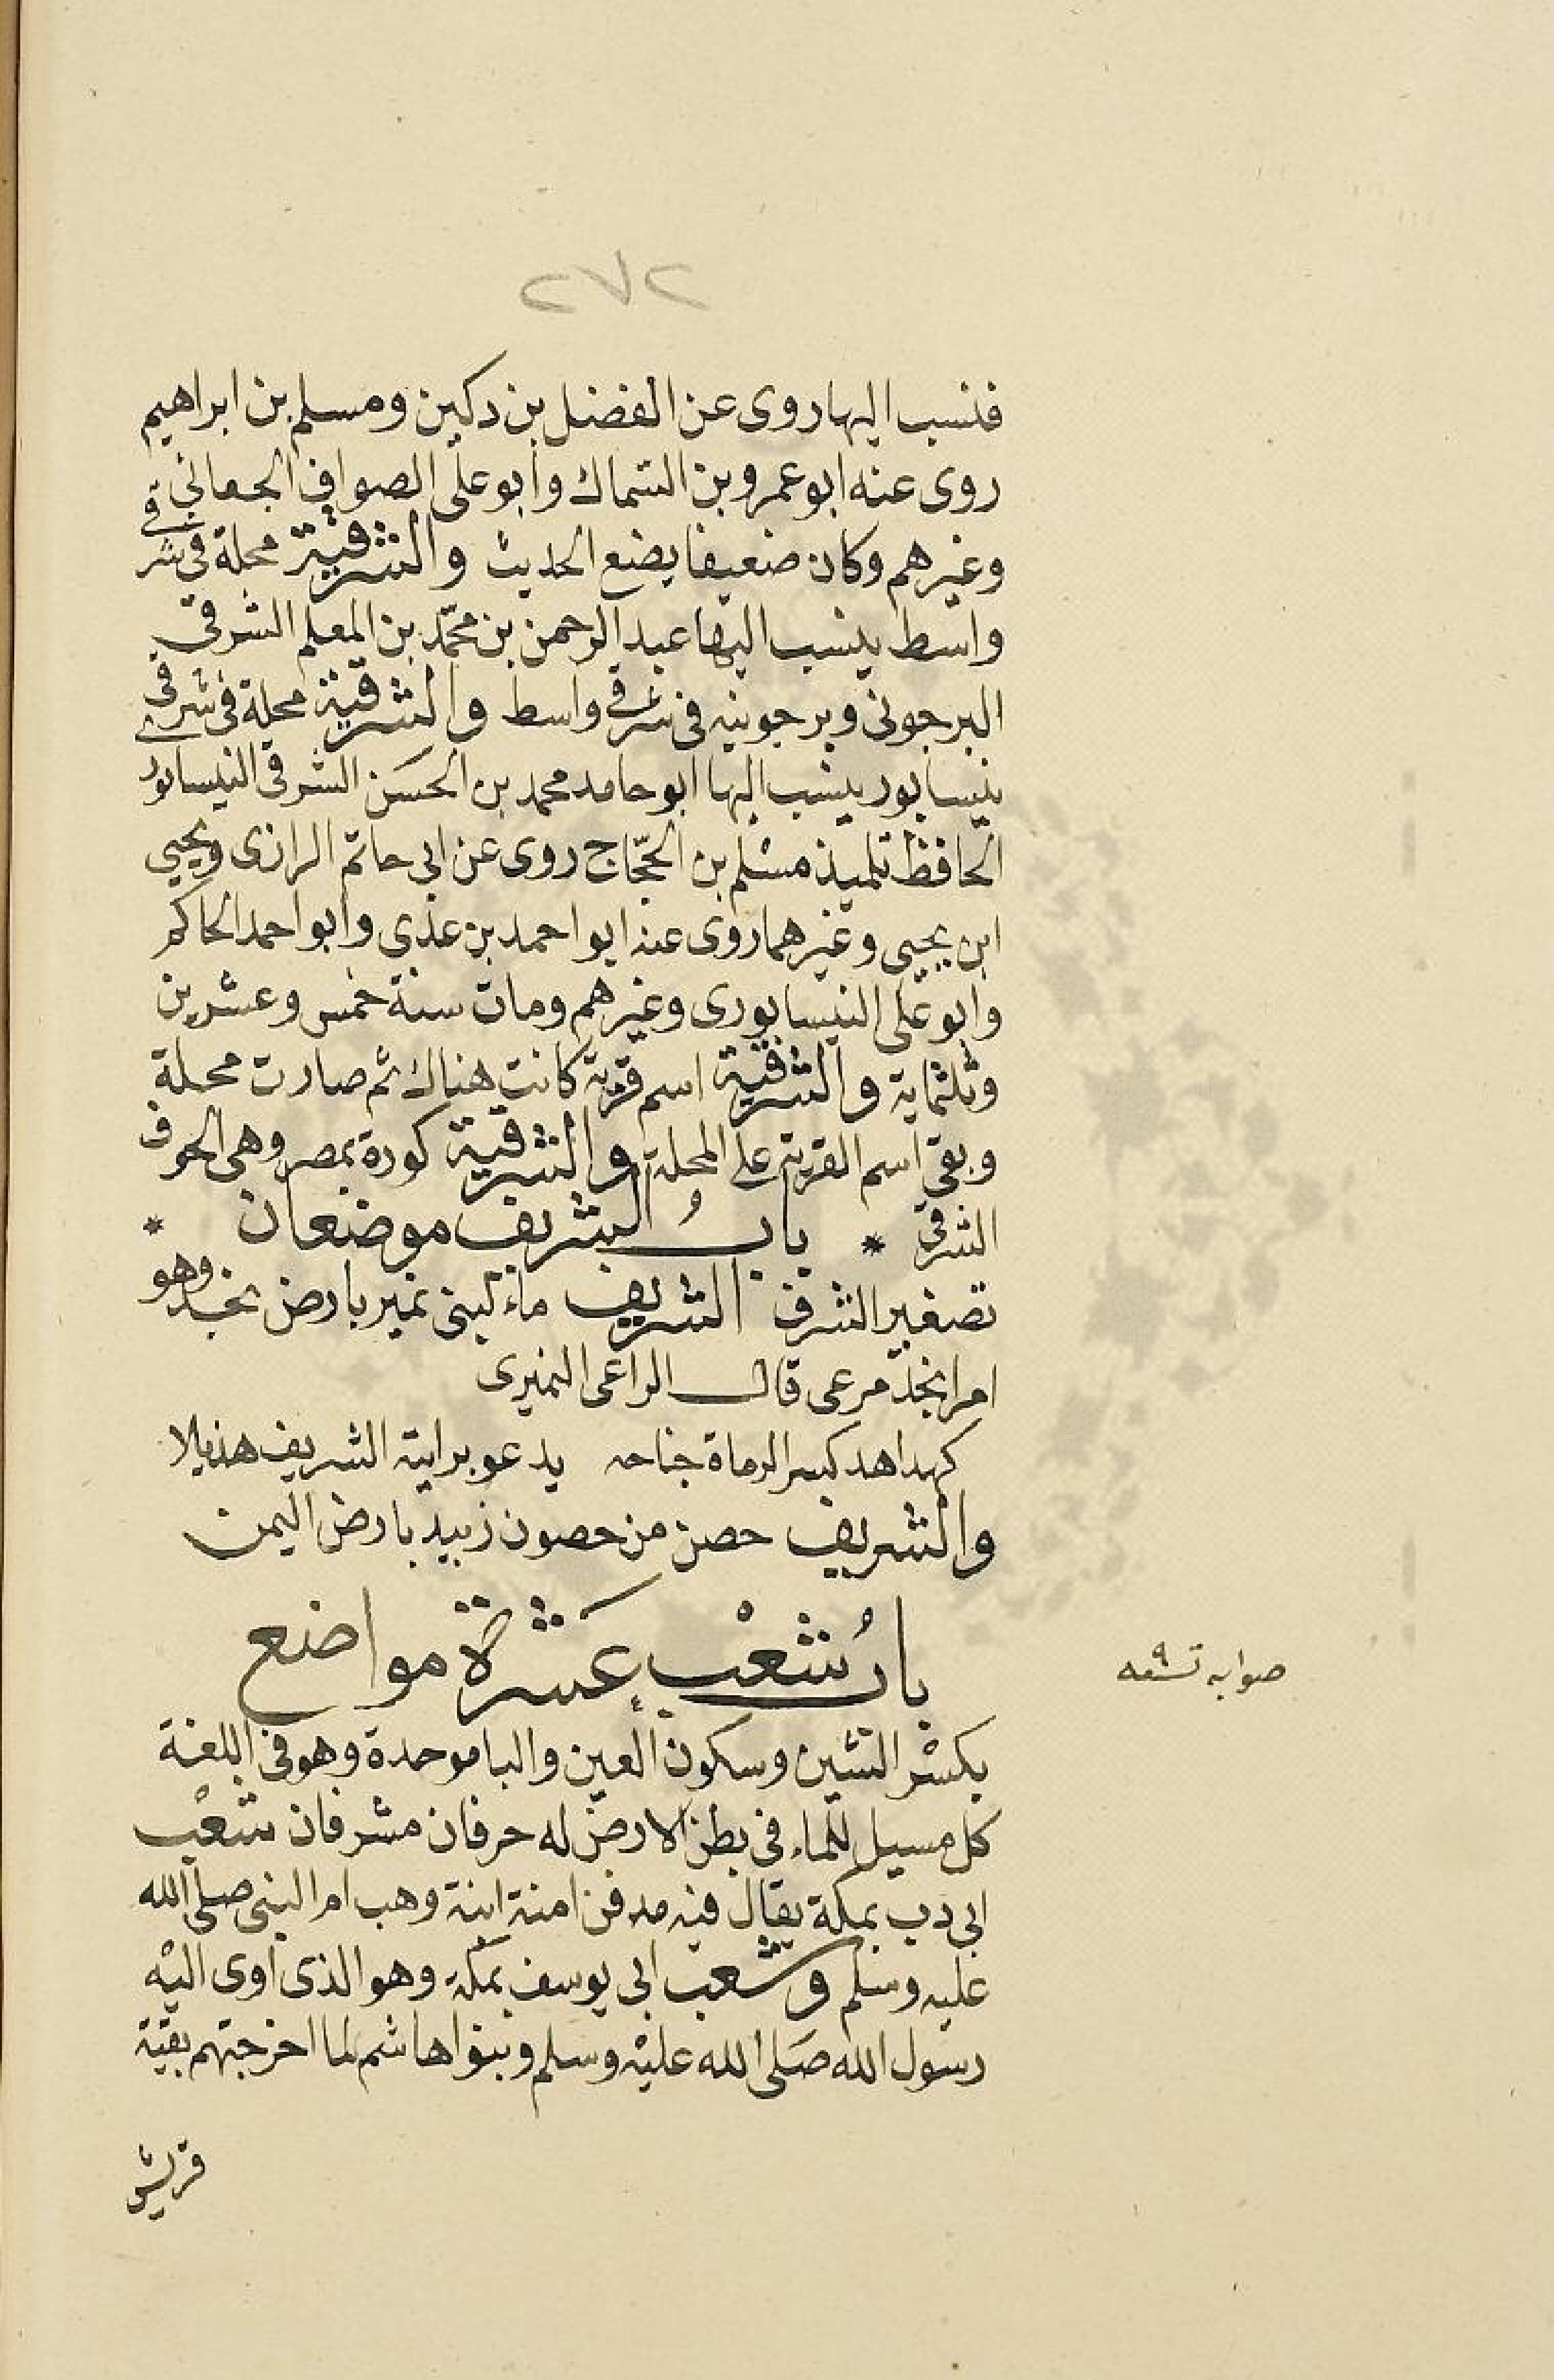 ٢٧٢
فنسب اليها روى عن الفضل بن دكين ومسلم بن ابراهيم
روى عنه ابو عمرو بن السماك وابو على الصواف الجعانى
وغيرهم وكان ضعيفا يضع الحديث والشرقية محلة في شرقى
واسط ينسب اليها عبد الرحمن بن محمّد بن المعلم الشرقى
البرجونى وبرجونيه فى شرقى واسط والشرقية محلة فى شرقى
نيسابور ينسب اليها ابو حامد محمد بن الحسَن الشرقى النيسابورى
الحافظ تلميذ مسْلم بن الحجّاج روى عن ابى حاتم الرازى ويحيى
ابن يحيى وغيرهما روى عنه ابو احمد بن عدى وابو احمد الحاكم
وابو على النيسابورى وغيرهم ومات سنة خمس وعشرين
وثلثماية والشرقية اسم قرية كانت هناك ثم صارت محلة
وبقى اسم القرية على المحلة والشرقية كورة بمصر وهى الحوف
الشرقى * بابُ الشريف موضعان *
تصغير الشرف الشريف ماء لبنى نمير بارض نجد وهو
امرا نجد مرعى قال الراعى النميرى
كهداهد كسر الرماة جناحه يدعو براية الشريف هذيلا
والشريف حصن من حصون زبيد بارض اليمن
بابُ شعْبٍ عَشرة مواضع
صوابه تسعه ٩
بكسْر الشين وسكون العين والبا موحدة وهو فى اللغة
كل مسيل للماء فى بطن الارض له حرفان مشرفان شعْب
ابى دب بمكة يقال فيه مدفن امنة ابنة وهب ام النبى صلى الله
عليه وسلم وشعب ابى يوسف بمكة وهو الذى اوى اليْه
رسول الله صَلى الله عليْه وسلم وبنوا هاشم لما اخرجتهم بقية
قريش